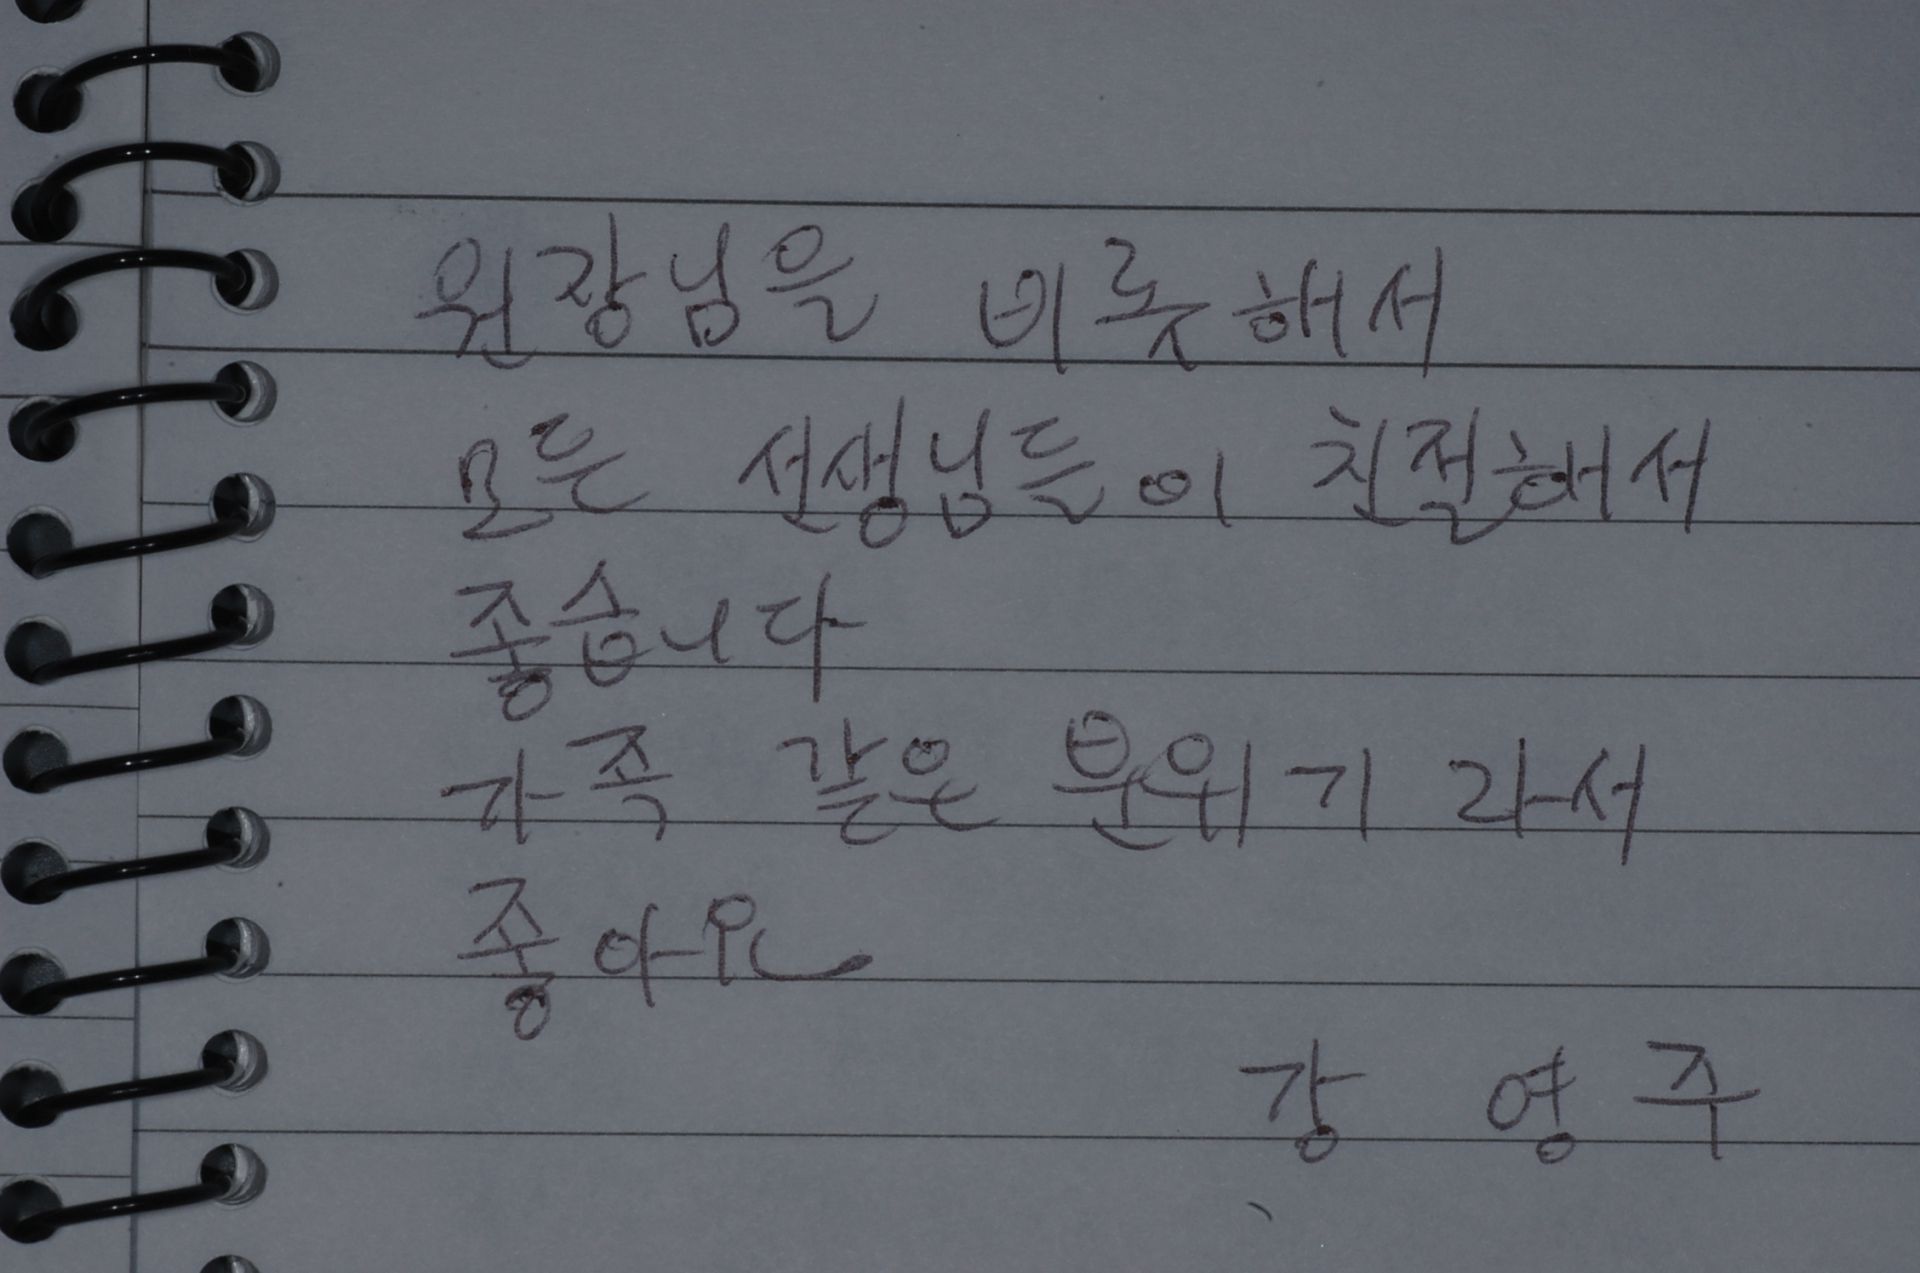 원장님을 비롯해서
모든 선생님들이 친절해서
좋습니다
가족 같은 분위기 라서
좋아요
강 영 주